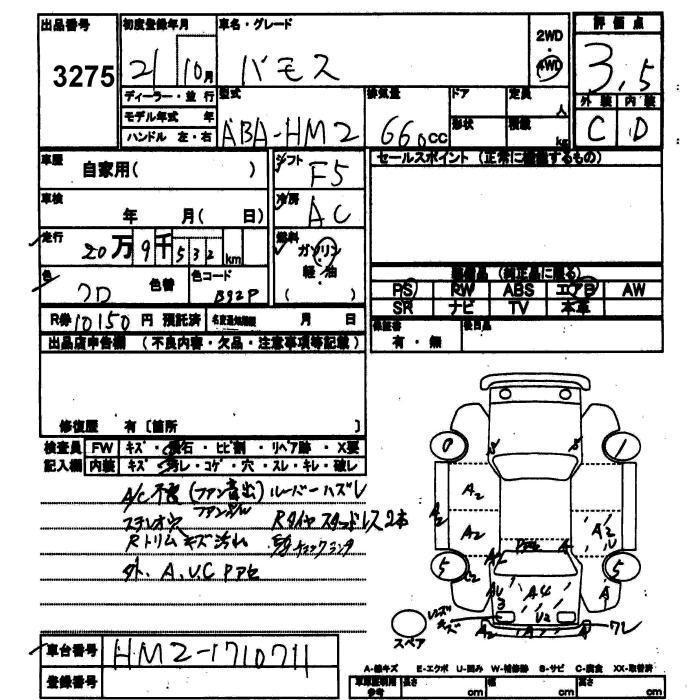 出品番号 初度登録年月 車名・グレード 2WD 評価点
3275 21 10月 バモス 4WD 3.5
ディーラー・並行 型式 排気量 ドア 定員 人 外装 内装
モデル年式 年 ABA-HM2 660cc 形状 積載 kg C D
ハンドル 左・右
車歴 自家用( ) シフト F5 セールスポイント (正常に機能するもの)
車検 年 月( 日) 冷房 AC
走行 20万9千532km 燃料 ガソリン
軽・油
色 クロ 色替 色コード B92P ( ) 装備品 (純正品に限る)
PS RW ABS エアB AW
SR ナビ TV 本革
R券 10150円 預託済 月 日 保証書 有・無 後日品
出品店申告欄 (不良内容・欠品・注意事項等記載)
修復歴 有 [箇所 ]
検査員 FW キズ・飛石・ヒビ割・リペア跡・X要
記入欄 内装 キズ・汚レ・コゲ・穴・スレ・キレ・破レ
A/C不良 (ファン音出) ルーバーハズレ
ステレオ穴 Rタイヤスタッドレス2本
Rトリムキズ汚れ
外、A、U、C Pアセ
0 1
S S
A2
A2 A2 A2
U
Pアセ A
5 5
A2 C2
AU A4 A
3 U2
レンズキズ
A2 A ワレ
スペア
車台番号 HM2-1710711
登録番号
A-線キズ E-エクボ U-凹み W-補修跡 B-サビ C-腐食 XX-取替済
車庫証明用参考 長さ cm 幅 cm 高さ cm